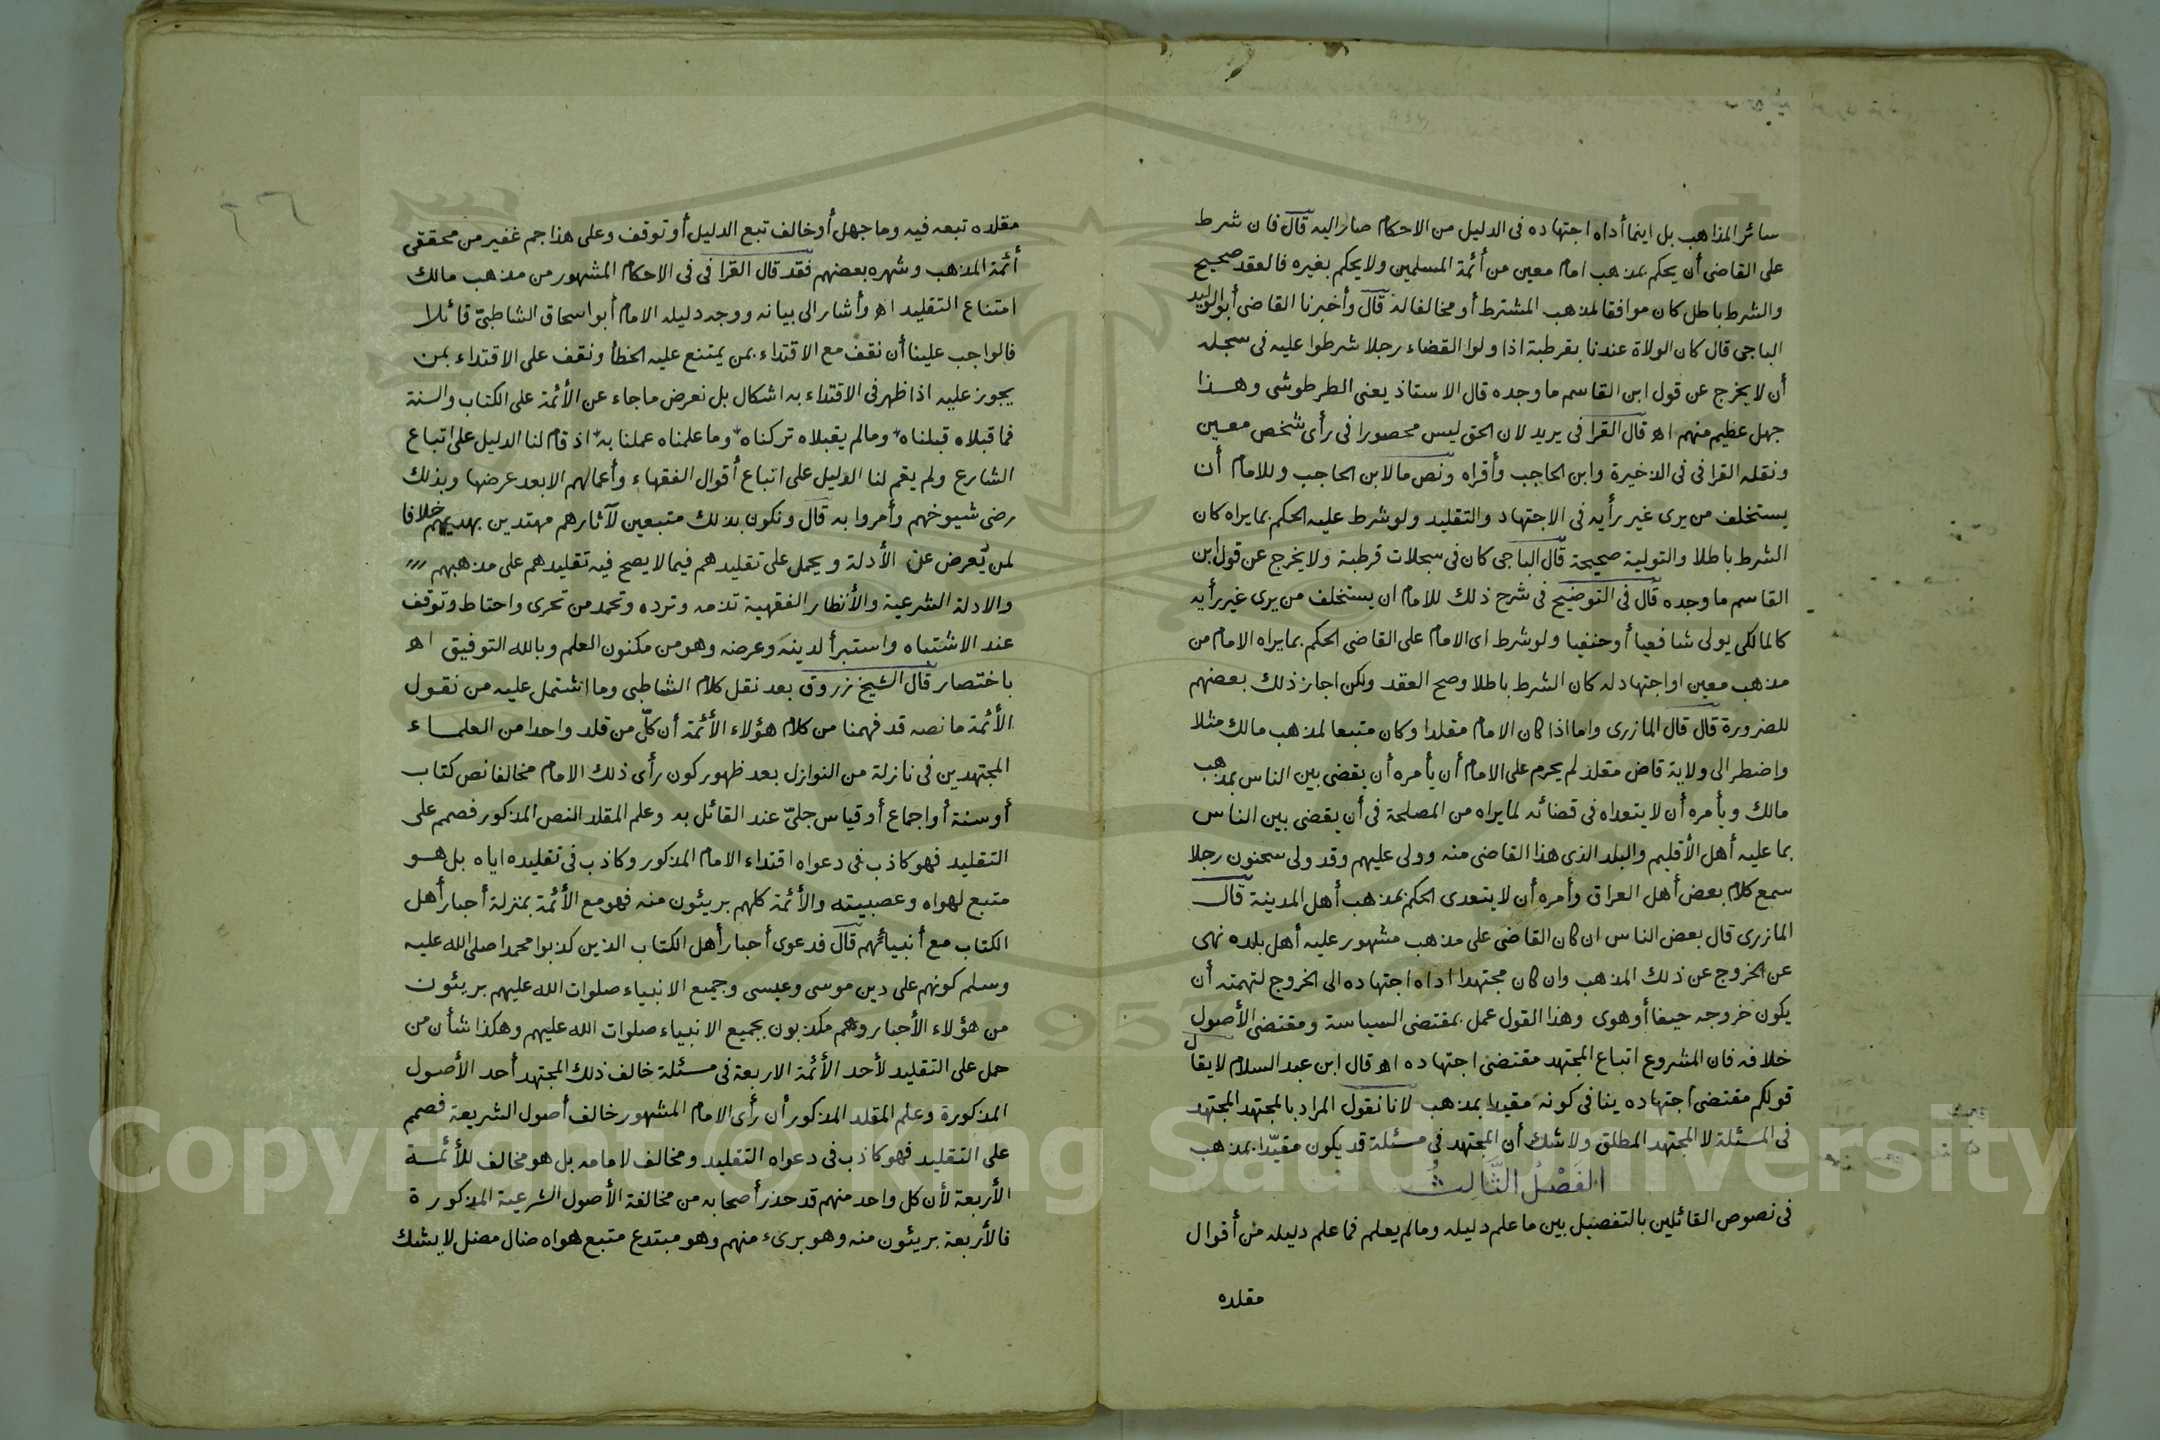 سائر المذاهب بل اينما أداه اجتهاده فى الدليل من الاحكام صار اليه قال فان شرط
على القاضى أن يحكم بمذهب امام معين من أئمة المسلمين ولا يحكم بغيره فالعقد صحيح
والشرط باطل كان موافقا لمذهب المشترط أو مخالفا له قال وأخبرنا القاضى أبو الوليد
الباجى قال كان الولاة عندنا بقرطبة اذا ولوا القضاء رجلا شرطوا عليه فى سجله
أن لا يخرج عن قول ابن القاسم ما وجده قال الاستاذ يعنى الطرطوشى وهذا
جهل عظيم منهم اه قال القرافى يريد لان الحق ليس محصورا فى رأى شخص معين
ونقله القرافى فى الذخيرة وابن الحاجب وأقراه ونص ما لابن الحاجب وللامام أن
يستخلف من يرى غير رأيه فى الاجتهاد والتقليد ولو شرط عليه الحكم بما يراه كان
الشرط باطلا والتولية صحيحة قال الباجى كان فى سجلات قرطبة ولا يخرج عن قول ابن
القاسم ما وجده قال فى التوضيح فى شرح ذلك للامام ان يستخلف من يرى غير رأيه
كالمالكى يولى شافعيا أو حنفيا ولو شرط اى الامام على القاضى الحكم بما يراه الامام من
مذهب معين او اجتهاد له كان الشرط باطلا وصح العقد ولكن اجاز ذلك بعضهم
للضرورة قال قال المازرى واما اذا كان الامام مقلدا وكان متبعا لمذهب مالك مثلا
واضطر الى ولاية قاض مقلد لم يحرم على الامام أن يأمره أن يقضى بين الناس بمذهب
مالك ويأمره أن لا يتعداه فى قضائه لما يراه من المصلحة فى أن يقضى بين الناس
بما عليه أهل الأقليم والبلد الذى هذا القاضى منه وولى عليهم وقد ولى سحنون رجلا
سمع كلام بعض أهل العراق وأمره أن لا يتعدى الحكم بمذهب أهل المدينة قال
المازرى قال بعض الناس ان كان القاضى على مذهب مشهور عليه أهل بلده نهى
عن الخروج عن ذلك المذهب وان كان مجتهدا اداه اجتهاده الى الخروج لتهمته أن
يكون خروجه حيفا أو هوى وهذا القول عمل بمقتضى السياسة ومقتضى الأصول
خلافه فان المشروع اتباع المجتهد مقتضى اجتهاده اه قال ابن عبد السلام لا يقال
قولكم مقتضى اجتهاده ينافى كونه مقيدا بمذهب لانا نقول المراد بالمجتهد المجتهد
فى المسئلة لا المجتهد المطلق ولا شك أن المجتهد فى مسئلة قد يكون مقيّدا بمذهب
الفَصْلُ الثَّالِثُ
فى نصوص القائلين بالتفصيل بين ما علم دليله وما لم يعلم فما علم دليله من أقوال
مقلده
مقلده تبعه فيه وما جهل أو خالف تبع الدليل أو توقف وعلى هذا جم غفير من محققى
أئمة المذهب وشهره بعضهم فقد قال القرافى فى الاحكام المشهور من مذهب مالك
امتناع التقليد اه وأشار الى بيانه ووجه دليله الامام أبو اسحاق الشاطبىّ قائلا
فالواجب علينا أن نقف مع الاقتداء بمن يمتنع عليه الخطأ ونقف على الاقتداء بمن
يجوز عليه اذا ظهر فى الاقتداء به اشكال بل نعرض ما جاء عن الأئمة على الكتاب والسنة
فما قبلاه قبلناه وما لم يقبلاه تركناه وما علمناه عملنا به اذ قام لنا الدليل على اتباع
الشارع ولم يقم لنا الدليل على اتباع أقوال الفقهاء وأعمالهم الا بعد عرضها وبذلك
رضى شيوخهم وأمروا به قال ونكون بذلك متبعين لآثارهم مهتدين بهديهم خلافا
لمن يُعرض عن الأدلة ويحمل على تقليدهم فيما لا يصح فيه تقليدهم على مذهبهم
والادلة الشرعية والأنظار الفقهية تذمه وترده وتحمد من تحرى واحتاط وتوقف
عند الاشتباه واستبرأ لدينه وعرضه وهو من مكنون العلم وبالله التوفيق اه
باختصار قال الشيخ زروق بعد نقل كلام الشاطبى وما اشتمل عليه من نقول
الأئمة ما نصه قد فهمنا من كلام هؤلاء الأئمة أن كلّ من قلد واحدا من العلماء
المجتهدين فى نازلة من النوازل بعد ظهور كون رأى ذلك الامام مخالفا نص كتاب
أو سنة أو اجماع أو قياس جلىّ عند القائل به وعلم المقلد النص المذكور فصمم على
التقليد فهو كاذب فى دعواه اقتداء الامام المذكور وكاذب فى تقليده اياه بل هو
متبع لهواه وعصبيته والأئمة كلهم بريئون منه فهو مع الأئمة بمنزلة أحبار أهل
الكتاب مع أنبيائهم قال فدعوى أحبار أهل الكتاب الذين كذبوا محمدا صلى الله عليه
وسلم كونهم على دين موسى وعيسى وجميع الانبياء صلوات الله عليهم بريئون
من هؤلاء الأحبار وهم مكذبون بجميع الانبياء صلوات الله عليهم وهكذا شأن من
حمل على التقليد لأحد الأئمة الاربعة فى مسئلة خالف ذلك المجتهد أحد الأصول
المذكورة وعلم المقلد المذكور أن رأى الامام المشهور خالف أصول الشريعة فصمم
على التقليد فهو كاذب فى دعواه التقليد ومخالف لامامه بل هو مخالف للأئمة
الأربعة لأن كل واحد منهم قد حذر أصحابه من مخالفة الأصول الشرعية المذكورة
فالأربعة بريئون منه وهو برىء منهم وهو مبتدع متبع هواه ضال مضل لا بشك
Copyright © King Saud University